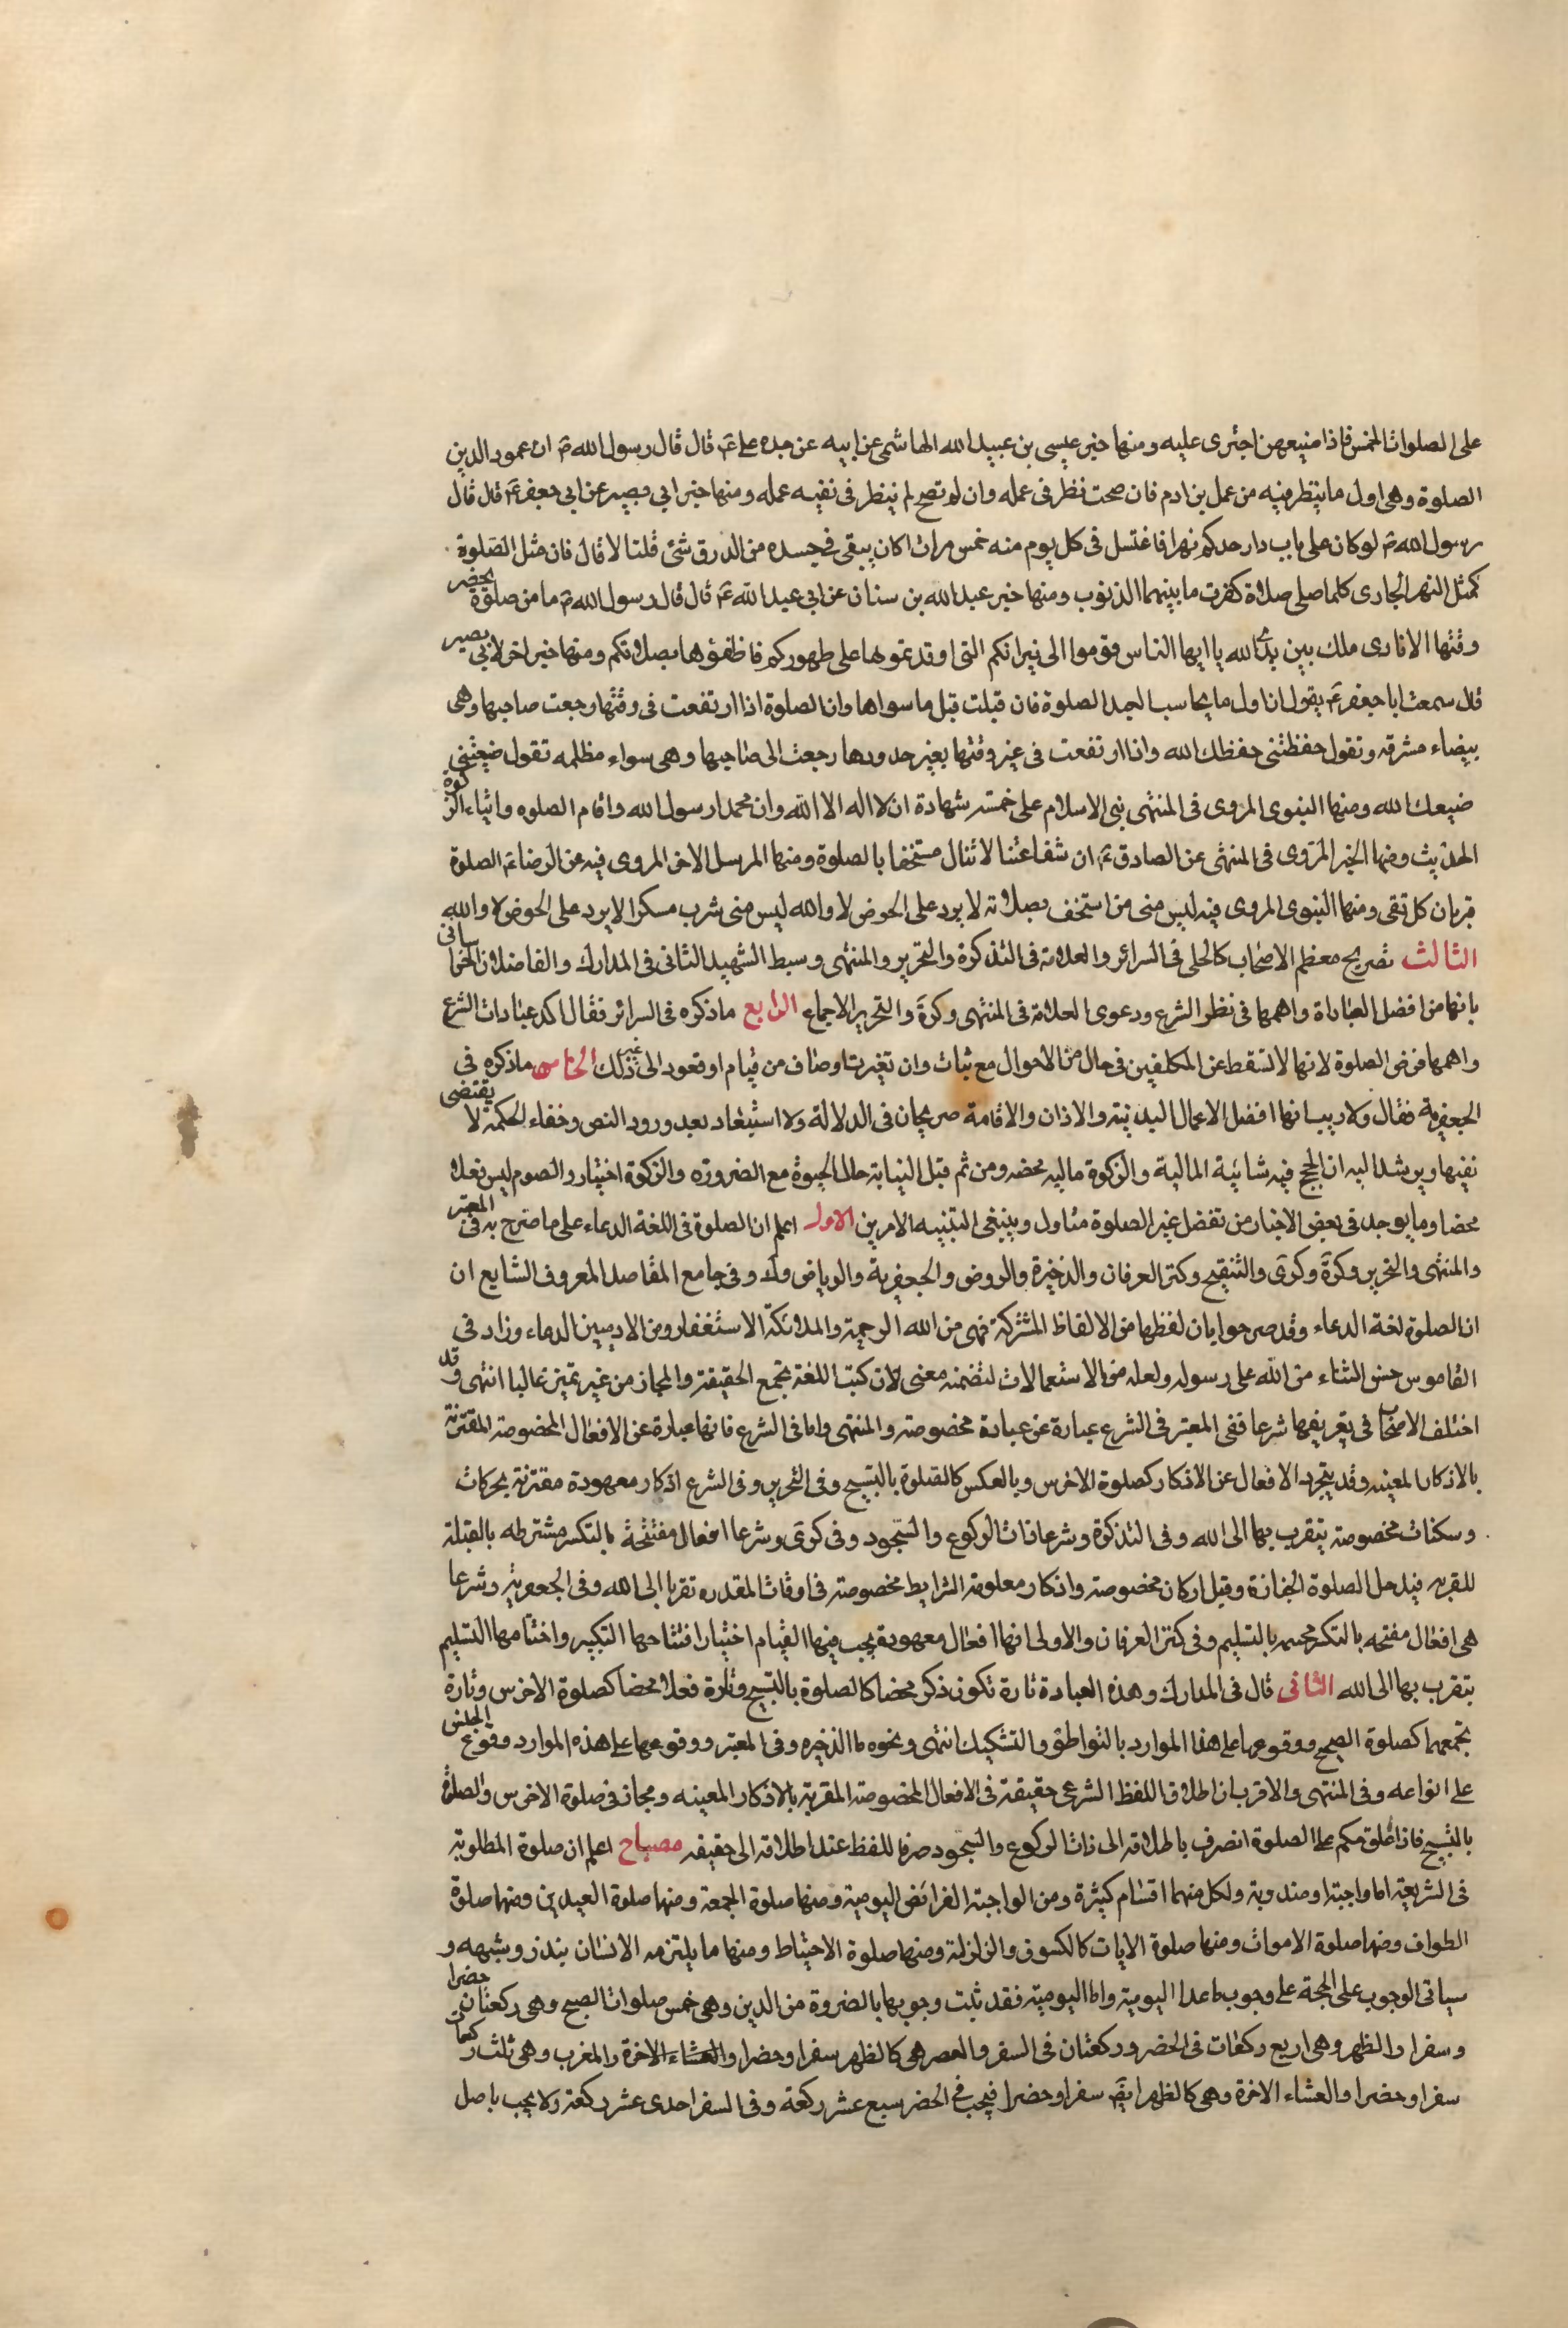 على الصلوات الخمس فاذا ضيعهن اجترى عليه ومنها خبر عيسى بن عبيد الله الهاشمى عن ابيه عن جده على ع قال قال رسول الله ص ان عمود الدين
الصلوة وهى اول ما ينظر فيه من عمل بن ادم فان صحت نظر فى عمله وان لم تصح لم ينظر فى بقيه عمله ومنها خبر ابى بصير عن ابى جعفر ع قال قال
رسول الله ص لو كان على باب دار احدكم نهر فاغتسل فى كل يوم منه خمس مرات اكان يبقى فى جسده من الدرن شئ قلنا لا قال فان مثل الصلوة
كمثل النهر الجارى كلما صلى صلاة كفرت ما بينهما الذنوب ومنها خبر عبد الله بن سنان عن ابى عبد الله ع قال قال رسول الله ص ما من صلوة يحضر
وقتها الا نادى ملك بين يدى الله يا ايها الناس قوموا الى نيرانكم التى اوقدتموها على ظهوركم فاطفؤها بصلاتكم ومنها خبر اخر لابى بصير
قال سمعت ابا جعفر ع يقول ان اول ما يحاسب العبد الصلوة فان قبلت قبل ما سواها وان الصلوة اذا ارتفعت فى وقتها رجعت صاحبها وهى
بيضاء مشرقه وتقول حفظتنى حفظك الله واذا ارتفعت فى غير وقتها بغير حدودها رجعت الى صاحبها وهى سواء مظلمه تقول ضيعتنى
ضيعك الله ومنها النبوى المروى فى المنتهى بنى الاسلام على خمسة شهادة ان لا اله الا الله وان محمدا رسول الله واقام الصلوه وايتاء الزكوة
الحديث ومنها الخبر المروى فى المنتهى عن الصادق ع ان شفاعتنا لا تنال مستخفا بالصلوة ومنها المرسل الاخر المروى فيه عن الرضا ع الصلوة
قربان كل تقى ومنها النبوى المروى فيه ليس منى من استخف بصلاته لا يرد على الحوض لا والله ليس منى شرب مسكرا لا يرد على الحوض لا والله
الثالث تصريح معظم الاصحاب كالحلى فى السرائر والعلامة فى التذكرة والتحرير والمنتهى وسبط الشهيد الثانى فى المدارك والفاضلان الخراسانى
بانها من افضل العبادات واهمها فى نظر الشرع ودعوى العلامة فى المنتهى وكرة والتحرير الاجماع الرابع ما ذكره فى السرائر فقال اكد عبادات الشرع
واهمها فرض الصلوة لانها لا تسقط عن المكلفين فى حال من الاحوال مع ثبات وان تغيرت اوصاف من قيام او قعود الى غير ذلك الخامس ما ذكره فى
الجعفرية فقال ولا ريب انها افضل الاعمال البدنية والاذان والاقامة صريحان فى الدلالة ولا استبعاد بعد ورود النص وخفاء الحكمة لا يقتضى
نفيها ويرشد اليه ان الحج فيه شائبة المالية والزكوة ماليه محضه ومن ثم قبل النيابة حال الحيوة مع الضروره والزكوة اختيار والصوم ليس فعلا
محضا وما يوجد فى بعض الاخبار من تفضل غير الصلوة متاول وينبغى التنبيه الامرين الاول اعلم ان الصلوة فى اللغة الدعاء على ما صرح به فى المعتبر
والمنتهى والتحرير وكرة وكرى والتنقيح وكنز العرفان والذخيرة والروض والجعفرية والرياض وك وفى جامع المقاصد المعروف الشايع ان
ان الصلوة لغة الدعاء وقد صرحوا بان لفظها من الالفاظ المشتركة فهى من الله الرحمة والملائكة الاستغفار ومن الادميين الدعاء وزاد فى
القاموس حسن الثناء من الله على رسوله ولعله من الاستعمالات لتضمنه معنى لان كتب اللغة تجمع الحقيقة والمجاز من غير تميز غالبا انتهى وقد
اختلف الاصحاب فى تعريفها شرعا ففى المعتبر فى الشرع عبارة عن عبادة مخصوصة والمنتهى واما فى الشرع فانها عبارة عن الافعال المخصوصة المقترنة
بالاذكار المعينه وقد يتجرد الافعال عن الاذكار كصلوة الاخرس وبالعكس كالصلوة بالتسبيح وفى التحرير وفى الشرع اذكار معهودة مقترنة بحركات
وسكنات مخصوصة يتقرب بها الى الله وفى التذكرة وشرعا ذات الركوع والسجود وفى كرى وشرعا افعال مفتتحة بالتكبير مشترطه بالقبلة
للقربه فيدخل الصلوة الجنازة وقيل اركان مخصوصة واذكار معلومة الشرايط مخصوصة فى اوقات المقدره تقربا الى الله وفى الجعفرية وشرعا
هى افعال مفتحه بالتكبير مختتمه بالتسليم وفى كنز العرفان والاولى انها افعال معهودة يجب فيها القيام اختيارا افتتاحها التكبير واختتامها التسليم
يتقرب بها الى الله الثانى قال فى المدارك وهذه العبادة تارة تكون ذكر محضا كالصلوة بالتسبيح وتارة فعلا محضا كصلوة الاخرس وتارة
تجمعهما كصلوة الصحيح ووقوعها على هذا الموارد بالتواطؤ والتشكيك انتهى ونحوه ما الذخيره وفى المعتبر ووقوعها على هذه الموارد وقوع الجنس
على انواعه وفى المنتهى والاقرب ان اطلاق اللفظ الشرعى حقيقة فى الافعال المخصوصة المقرنة بالاذكار المعينه ومجاز فى صلوة الاخرس والصلوة
بالتسبيح فاذا علق حكم على الصلوة انصرف باطلاقه الى ذات الركوع والسجود صرفا للفظ عند اطلاقه الى حقيقه مصباح اعلم ان صلوة المطلوبة
فى الشريعة اما واجبة او مندوبة ولكل منهما اقسام كثيرة ومن الواجبة الفرائض اليومية ومنها صلوة الجمعة ومنها صلوة العيدين ومنها صلوة
الطواف ومنها صلوة الاموات ومنها صلوة الايات كالكسوف والزلزلة ومنها صلوة الاحتياط ومنها ما يلتزمه الانسان بنذر وشبهه و
سياتى الوجوب على الحجة على وجوب ما عدا اليومية واما اليومية فقد ثبت وجوبها بالضروة من الدين وهى خمس صلوات الصبح وهى ركعتان حضرا
وسفرا والظهر وهى اربع ركعات فى الحضر وركعتان فى السفر والعصر هى كالظهر سفرا وحضرا والعشاء الاخرة والمغرب وهى ثلث ركعات
سفرا وحضرا والعشاء الاخرة وهى كالظهر ايض سفرا وحضرا فيجب فى الحضر سبع عشر ركعة وفى السفر احدى عشر ركعة ولا يجب باصل